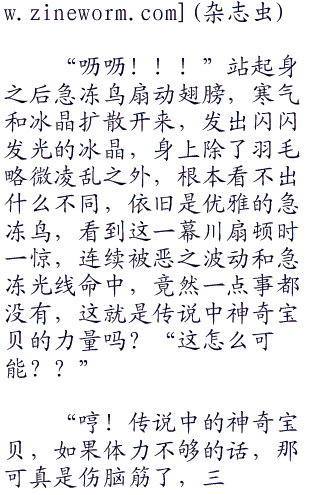 w.zineworm.com](杂志虫)
“呖呖！！！”站起身
之后急冻鸟扇动翅膀，寒气
和冰晶扩散开来，发出闪闪
发光的冰晶，身上除了羽毛
略微凌乱之外，根本看不出
什么不同，依旧是优雅的急
冻鸟，看到这一幕川扇顿时
一惊，连续被恶之波动和急
冻光线命中，竟然一点事都
没有，这就是传说中神奇宝
贝的力量吗？“这怎么可
能？？”
“哼！传说中的神奇宝
贝，如果体力不够的话，那
可真是伤脑筋了，三